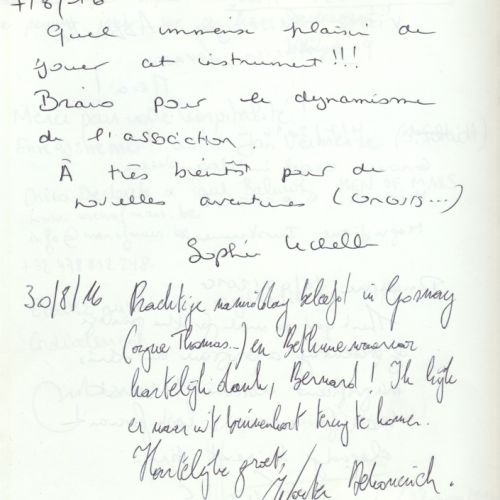 7/8/16
Quel immense plaisir de
jouer cet instrument!!!
Bravo pour le dynamisme
de l'association.
À très bientôt pour de
nouvelles aventures (
Sophie
30/8/16 Prachtige namiddag beleefd in Gosnay
(orgue Thomas...) en Bethune waarvoor
hartelijk dank, Bernard! Ik kijk
er naar uit binnenkort terug te komen.
Hartelijke groet,
Wouter